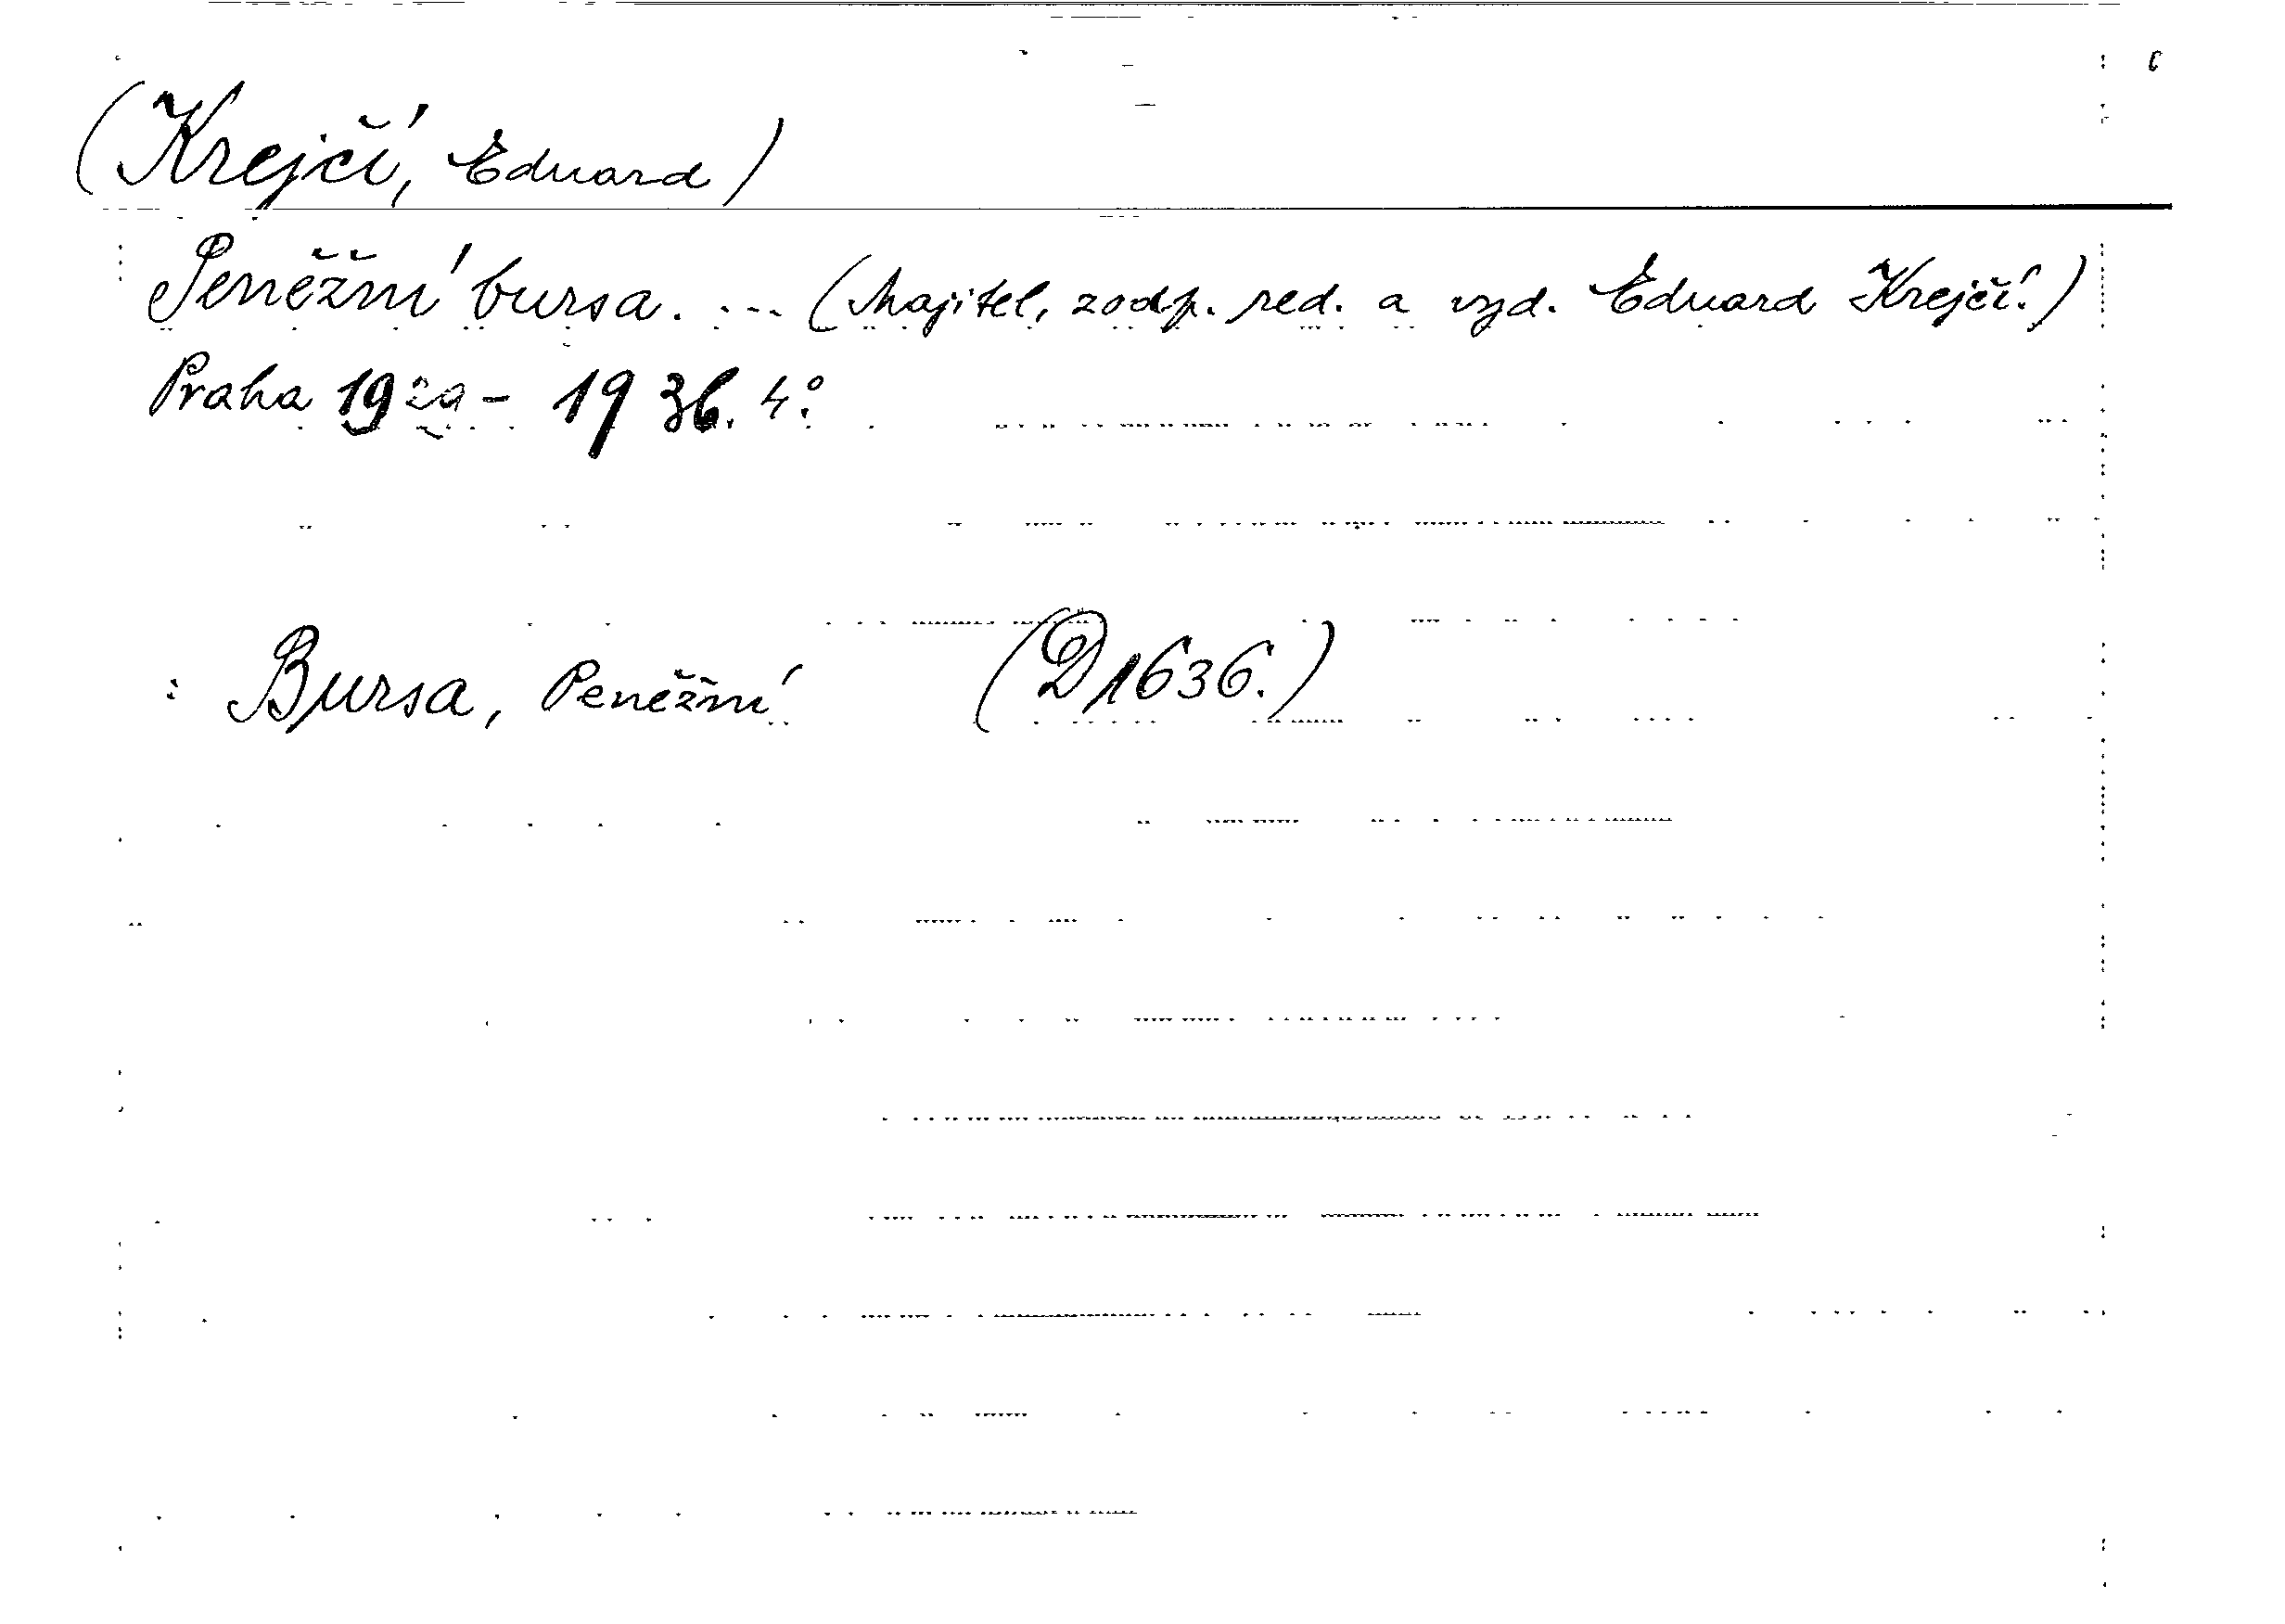 (Krejčí, Eduard)
Peněžní bursa. ... (Majitel, zodp. red. a vyd. Eduard Krejčí.)
Praha 1929 - 1936. 4°.
Bursa, Peněžní (D1636.)